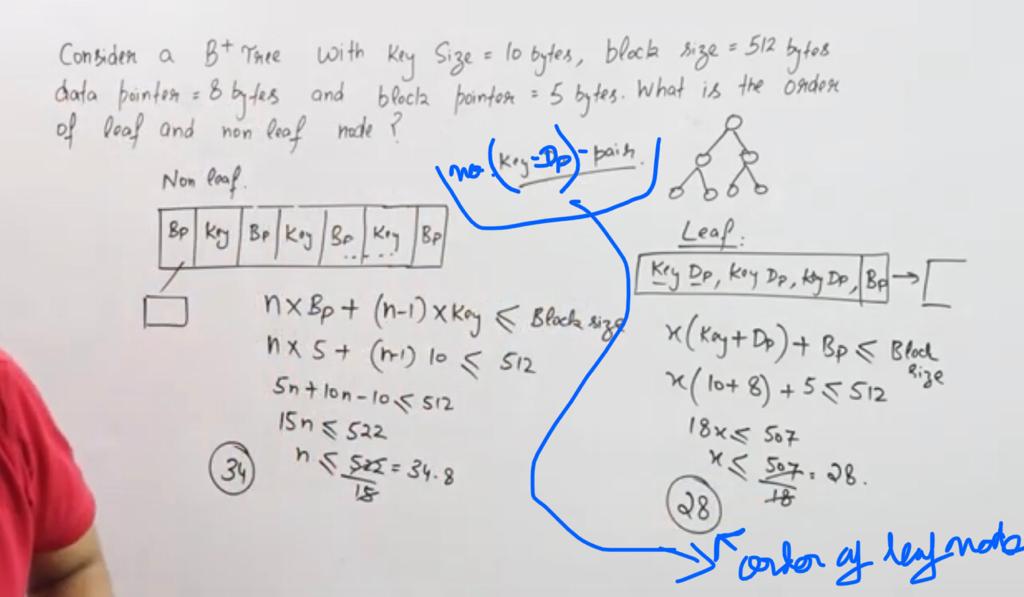 Consider a B+ Tree with Key Size = 10 bytes, block size = 512 bytes
data pointer = 8 bytes and block pointer = 5 bytes. What is the order
of leaf and non leaf node ?
no. (Key-Dp)-pair.
Non leaf.
Bp Key Bp Key Bp ..... Key Bp
n×Bp + (n-1)×Key ≤ Block size
n×5 + (n-1) 10 ≤ 512
5n+10n-10 ≤ 512
15n ≤ 522
n ≤ 522/15 = 34.8
34
Leaf:
Key Dp, Key Dp, Key Dp, Bp →
x(Key+Dp) + Bp ≤ Block
size
x(10+8) + 5 ≤ 512
18x ≤ 507
x ≤ 507/18 = 28.
28
order of leaf node